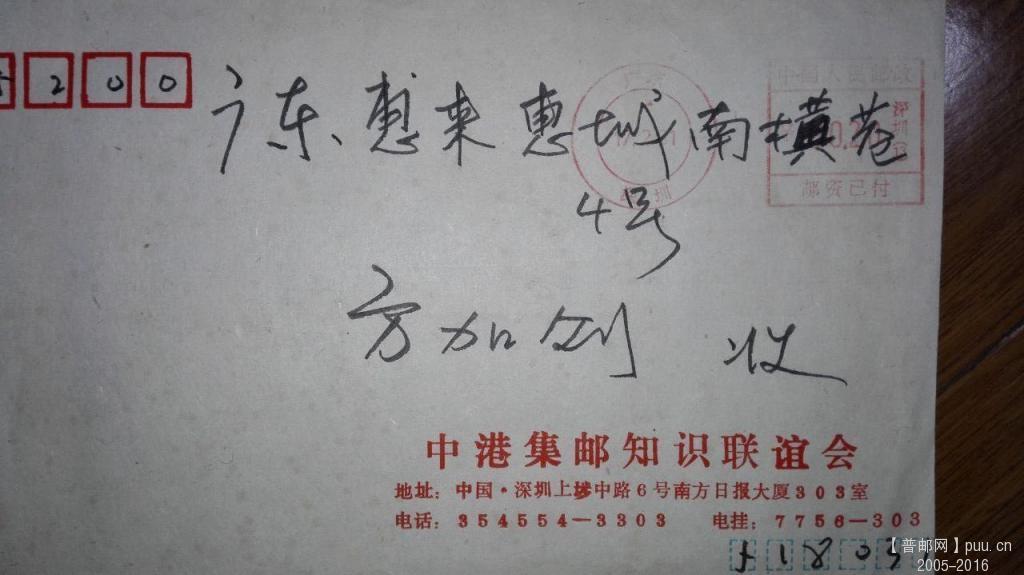 5200
广东惠来惠城南横巷
4号
方加剑 收
广东
深圳
中国人民邮政
深圳
邮资已付
中港集邮知识联谊会
地址：中国·深圳上埗中路6号南方日报大厦303室
电话：354554—3303 电挂：7756—303
51803
【普邮网】puu.cn
2005-2016